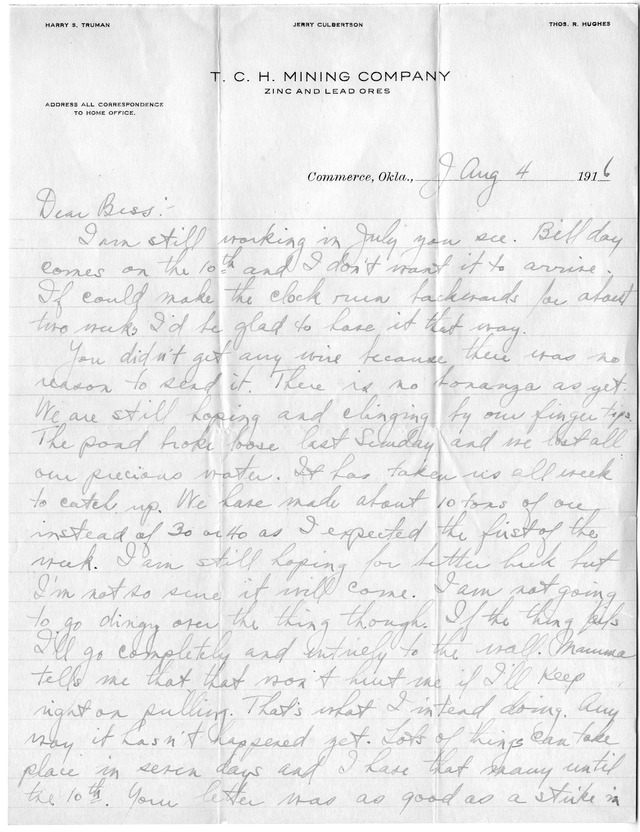 HARRY S. TRUMAN JERRY CULBERTSON THOS. R. HUGHES
T. C. H. MINING COMPANY
ZINC AND LEAD ORES
ADDRESS ALL CORRESPONDENCE
TO HOME OFFICE.
Commerce, Okla., J Aug 4 1916
Dear Bess:-
I am still working in July you see. Bill day
comes on the 10th and I don't want it to arrive.
If could make the clock run backwards for about
two weeks I'd be glad to have it that way.
You didn't get any wire because there was no
reason to send it. There is no bonanza as yet.
We are still hoping and clinging by our finger tips.
The pond broke loose last Sunday and we lost all
our precious water. It has taken us all week
to catch up. We have made about 10 tons of ore
instead of 30 or 40 as I expected the first of the
week. I am still hoping for better luck but
I'm not so sure it will come. I am not going
to go dingy over the thing though. If the thing fails
I'll go completely and entirely to the wall. Mamma
tells me that that won't hurt me if I'll keep
right on pulling. That's what I intend doing. Any
way it hasn't happened yet. Lots of things can take
place in seven days and I have that many until
the 10th. Your letter was as good as a strike in